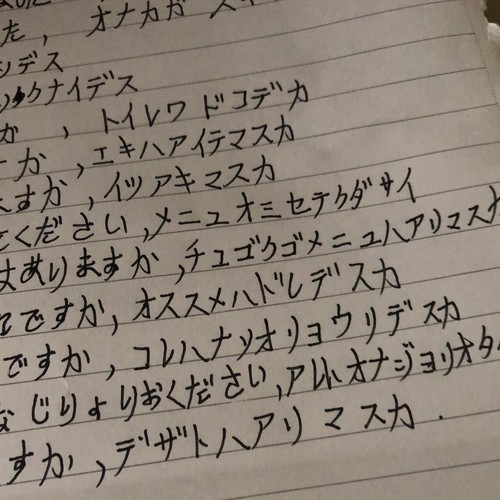 た, オナカガ
ンデス
クナイデス
か, トイレワドコデカ
か, エキハアイテマスカ
ますか, イツアキマスカ
ください, メニュオミセテクダサイ
はありますか, チュゴクゴメニュハアリマスカ
ですか, オススメハドレデスカ
ですか, コレハナンオリョウリデスカ
なじりよりおください, アレトオナジヨリオタ
すか, デザトハアリマスカ.